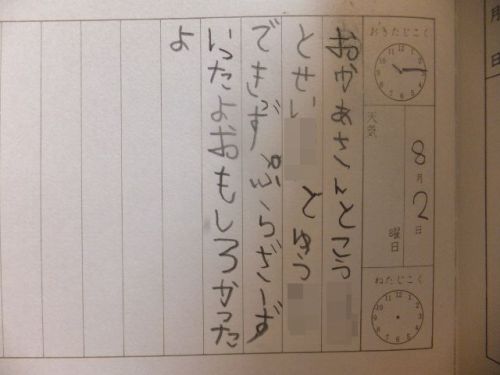 おきたじこく
8月2日
天気
曜日
ねたじこく
おかあさんとこう
とせい とゆう
できっず ぷらざーず
いったよおもしろかった
よ